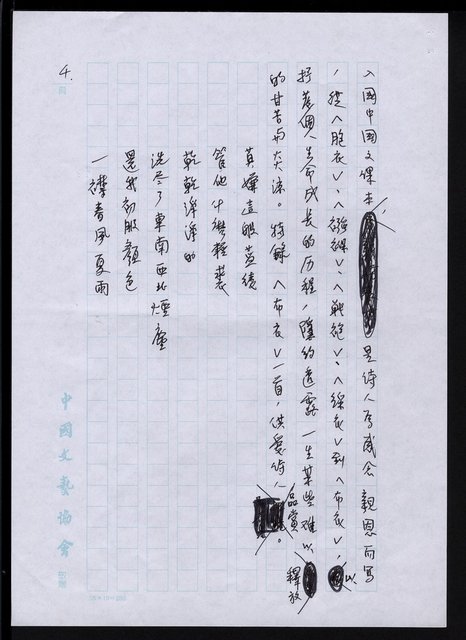 入國中國文課本是詩人為感念親恩而寫
，從〈胞衣〉、〈襁褓〉、〈戰袍〉、〈綵衣〉到〈布衣〉，以
抒着個人生命成長的历程，隱約透露一生某些难以釋放
的甘苦与炎涼。特錄〈布衣〉一首，供愛詩人品賞。
莫嫌這般
管他什麼輕裘
乾乾淨淨的
洗尽了東南西北煙塵
還我初服顏色
一襟春風夏雨
4.
中國文藝協會